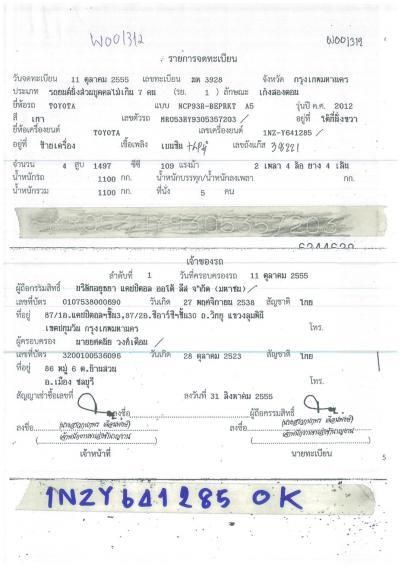 W001312
W001312
รายการจดทะเบียน
วันจดทะเบียน 11 ตุลาคม 2555 เลขทะเบียน 3928 จังหวัด กรุงเทพมหานคร
ประเภท รถยนต์นั่งส่วนบุคคลไม่เกิน 7 คน (รย. 1 ) ลักษณะ เก๋งสองตอน
ยี่ห้อรถ TOYOTA แบบ NCP93R-BEPRKT A5 รุ่นปี ค.ศ. 2012
สี เทา เลขตัวรถ MR053HY9305357203 อยู่ที่
ยี่ห้อเครื่องยนต์ TOYOTA เลขเครื่องยนต์ 1NZ-Y641285
อยู่ที่ ซ้ายเครื่อง เชื้อเพลิง เบนซิน เลขถังแก๊ส
จำนวน 4 สูบ 1497 ซีซี 109 แรงม้า 2 เพลา 4 ล้อ ยาง 4 เส้น
น้ำหนักรถ 1100 กก. น้ำหนักบรรทุก/น้ำหนักลงเพลา กก.
น้ำหนักรวม 1100 กก. ที่นั่ง 5 คน
เจ้าของรถ
ลำดับที่ 1 วันที่ครอบครองรถ 11 ตุลาคม 2555
ผู้ถือกรรมสิทธิ์ บริษัทอยุธยา แคปปิตอล ออโต้ ลีส จำกัด (มหาชน)
เลขที่บัตร 0107538000690 วันเกิด 27 พฤศจิกายน 2538 สัญชาติ ไทย
ที่อยู่ 87/1อ.แคปปิตอลฯชั้น3,87/2อ.ซีอาร์ซีฯชั้น30 ถ.วิทยุ แขวงลุมพินี
เขตปทุมวัน กรุงเทพมหานคร โทร.
ผู้ครอบครอง
เลขที่บัตร 3200100536096 วันเกิด 28 ตุลาคม 2523 สัญชาติ ไทย
ที่อยู่ 86 หมู่ 6 ต.บ้านสวน
อ.เมือง ชลบุรี โทร.
สัญญาเช่าซื้อเลขที่ ลงวันที่ 31 สิงหาคม 2555
ลงชื่อ ผู้ถือกรรมสิทธิ์
ลงชื่อ ลงชื่อ
เจ้าหน้าที่ นายทะเบียน
5
1NZY641285 OK